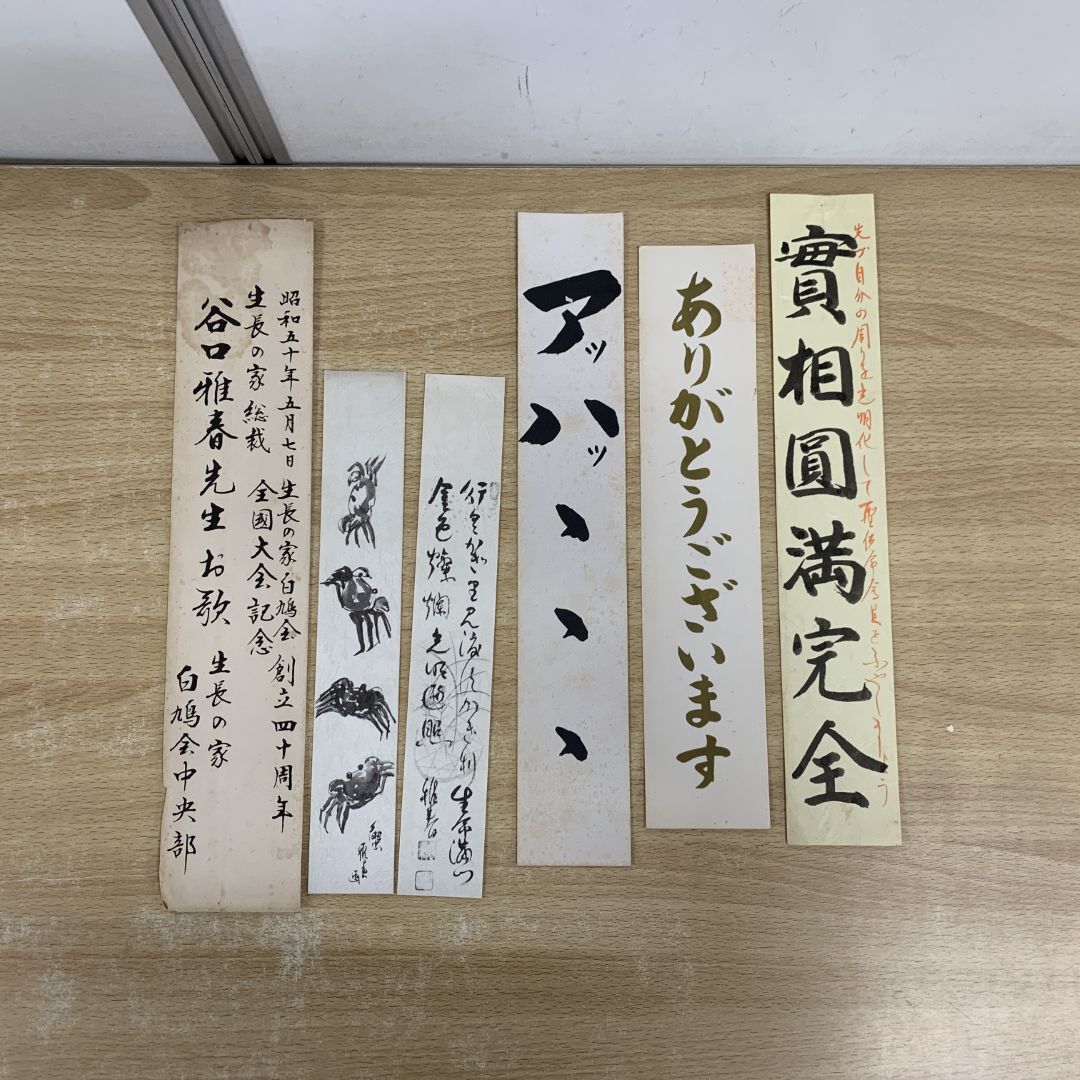 昭和五十年五月七日 生長の家白鳩会 創立四十周年
生長の家 総裁 全國大会記念
谷口雅春先生 お歌 生長の家
白鳩会中央部
蟹
雅春画
金色燦爛光明遍照
雅春
アッハハッヽヽヽ
ありがとうございます
先づ自分の周りを光明化して聖使命会員をふやしましょう
實相圓満完全